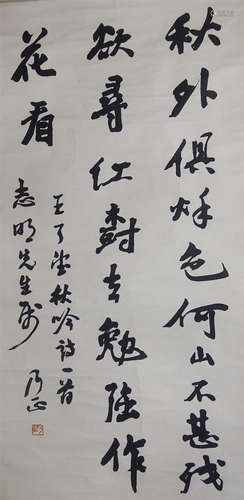 秋外俱秌色何山不甚残
欲尋红樹去勉强作
花看
王了望秋吟诗一首
志明先生属
乃正